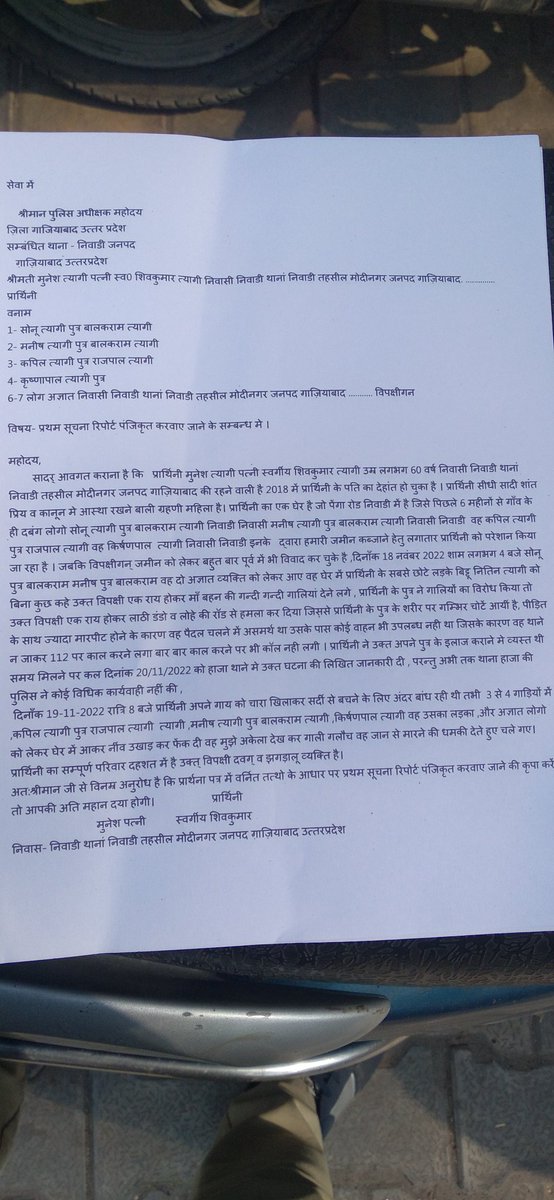 सेवा में
श्रीमान पुलिस अधीक्षक महोदय
ज़िला गाजियाबाद उत्तर प्रदेश
सम्बंधित थाना - निवाडी जनपद
गाज़ियाबाद उत्तरप्रदेश
श्रीमती मुनेश त्यागी पत्नी स्व0 शिवकुमार त्यागी निवासी निवाडी थानां निवाडी तहसील मोदीनगर जनपद गाज़ियाबाद. ..............
प्रार्थिनी
वनाम
1- सोनू त्यागी पुत्र बालकराम त्यागी
2- मनीष त्यागी पुत्र बालकराम त्यागी
3- कपिल त्यागी पुत्र राजपाल त्यागी
4- कृष्णापाल त्यागी पुत्र
6-7 लोग अज्ञात निवासी निवाडी थानां निवाडी तहसील मोदीनगर जनपद गाज़ियाबाद ........... विपक्षीगन
विषय- प्रथम सूचना रिपोर्ट पंजिकृत करवाए जाने के सम्बन्ध मे ।
महोदय,
सादर् आवगत कराना है कि प्रार्थिनी मुनेश त्यागी पत्नी स्वर्गीय शिवकुमार त्यागी उम्र लगभग 60 वर्ष निवासी निवाडी थानां
निवाडी तहसील मोदीनगर जनपद गाज़ियाबाद की रहने वाली है 2018 में प्रार्थिनी के पति का देहांत हो चुका है । प्रार्थिनी सीधी सादी शांत
प्रिय व कानून मे आस्था रखने बाली ग्रहणी महिला है। प्रार्थिनी का एक घेर है जो पेंगा रोड निवाडी में है जिसे पिछले 6 महीनों से गाँव के
ही दबंग लोगो सोनू त्यागी पुत्र बालकराम त्यागी निवाडी निवासी मनीष त्यागी पुत्र बालकराम त्यागी निवासी निवाडी वह कपिल त्यागी
पुत्र राजपाल त्यागी वह किर्षणपाल त्यागी निवासी निवाडी इनके द्वारा हमारी जमीन कब्जाने हेतु लगातार प्रार्थिनी को परेशान किया
जा रहा है । जबकि विपक्षीगन् जमीन को लेकर बहुत बार पूर्व में भी विवाद कर चुके है ,दिनाँक 18 नवंबर 2022 शाम लगभग 4 बजे सोनू
पुत्र बालकराम मनीष पुत्र बालकराम वह दो अज्ञात व्यक्ति को लेकर आए वह घेर में प्रार्थिनी के सबसे छोटे लड़के बिट्टू नितिन त्यागी को
बिना कुछ कहे उक्त विपक्षी एक राय होकर माँ बहन की गन्दी गन्दी गालियां देने लगे , प्रार्थिनी के पुत्र ने गालियों का विरोध किया तो
उक्त विपक्षी एक राय होकर लाठी डंडो व लोहे की रॉड से हमला कर दिया जिससे प्रार्थिनी के पुत्र के शरीर पर गम्भिर चोटें आयीं है, पीड़ित
के साथ ज्यादा मारपीट होने के कारण वह पैदल चलने में असमर्थ था उसके पास कोई वाहन भी उपलब्ध नही था जिसके कारण वह थाने
न जाकर 112 पर काल करने लगा बार बार काल करने पर भी कॉल नही लगी । प्रार्थिनी ने उक्त अपने पुत्र के इलाज कराने मे व्यस्त थी
समय मिलने पर कल दिनांक 20/11/2022 को हाजा थाने मे उक्त घटना की लिखित जानकारी दी , परन्तु अभी तक थाना हाजा की
पुलिस ने कोई विधिक कार्यवाही नहीं की ,
दिनाँक 19-11-2022 रात्रि 8 बजे प्रार्थिनी अपने गाय को चारा खिलाकर सर्दी से बचने के लिए अंदर बांध रही थी तभी 3 से 4 गाड़ियों में
,कपिल त्यागी पुत्र राजपाल त्यागी त्यागी ,मनीष त्यागी पुत्र बालकराम त्यागी ,किर्षणपाल त्यागी वह उसका लड़का ,और अज्ञात लोगो
को लेकर घेर में आकर नींव उखाड़ कर फेंक दी वह मुझे अकेला देख कर गाली गलौच वह जान से मारने की धमकी देते हुए चले गए।
प्रार्थिनी का सम्पूर्ण परिवार दहशत में है उक्त् विपक्षी दवग् व झगड़ालू व्यक्ति है।
अत:श्रीमान जी से विनम्र अनुरोध है कि प्रार्थना पत्र में वर्नित तत्थो के आधार पर प्रथम सूचना रिपोर्ट पंजिकृत करवाए जाने की कृपा करें
तो आपकी अति महान दया होगी। प्रार्थिनी
मुनेश पत्नी स्वर्गीय शिवकुमार
निवास- निवाडी थानां निवाडी तहसील मोदीनगर जनपद ग़ाज़ियाबाद उत्तरप्रदेश